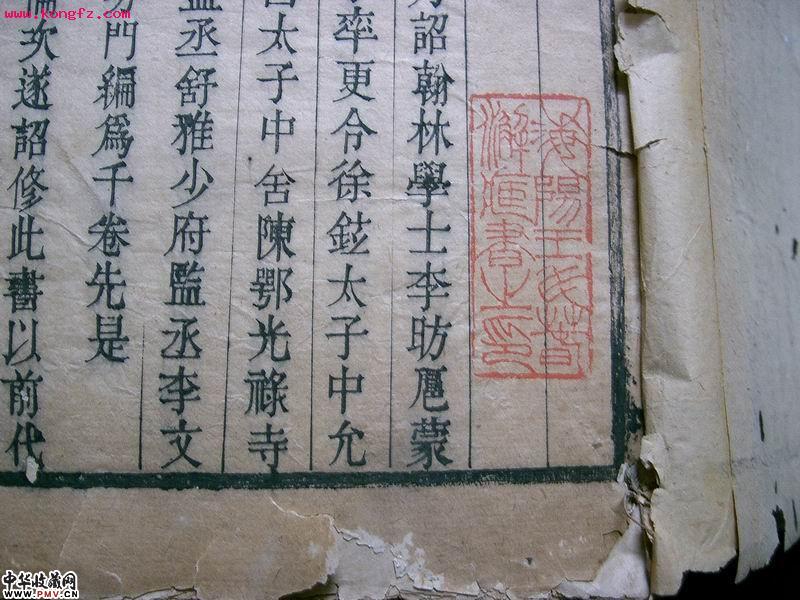 www.kongfz.com
詔翰林學士李昉扈蒙
率更令徐鉉太子中允
太子中舍陳鄂光祿寺
監丞舒雅少府監丞李文
門編爲千卷先是
次遂詔修此書以前代
海陽王氏
書之印
中华收藏网
www.PMV.CN